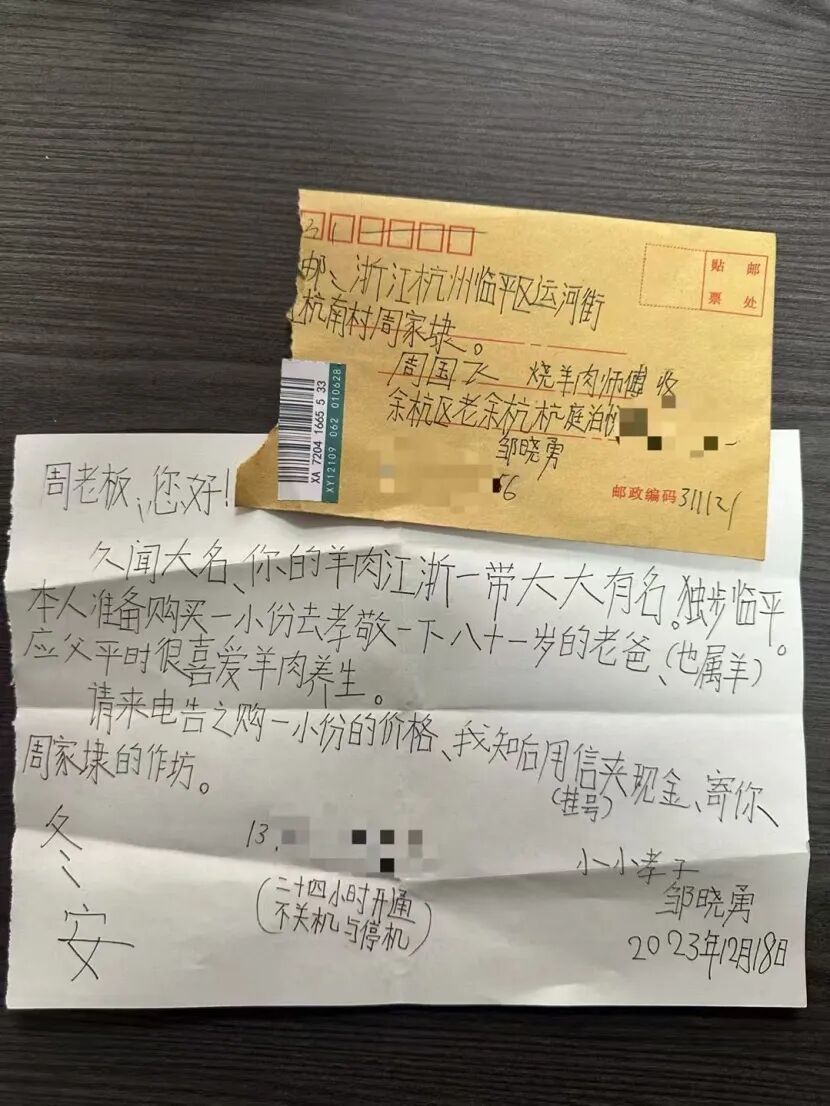 31
贴 邮
票 处
邮：浙江杭州临平区运河街
杭南村周家埭。
周国飞 烧羊肉师傅 收
余杭区老余杭 杭庭泊
邹晓勇
56
邮政编码 311121
XA 7204 1665 5 33
XY12109 062 010628
周老板、您好！
久闻大名、你的羊肉江浙一带大大有名。独步临平。
本人准备购买一小份去孝敬一下八十一岁的老爸、(也属羊)
应父平时很喜爱羊肉养生。
请来电告之购一小份的价格、我知后用信夹现金、寄你
(挂号)
周家埭的作坊。
冬安
13.
(二十四小时开通
不关机与停机)
小小孝子
邹晓勇
2023年12月18日